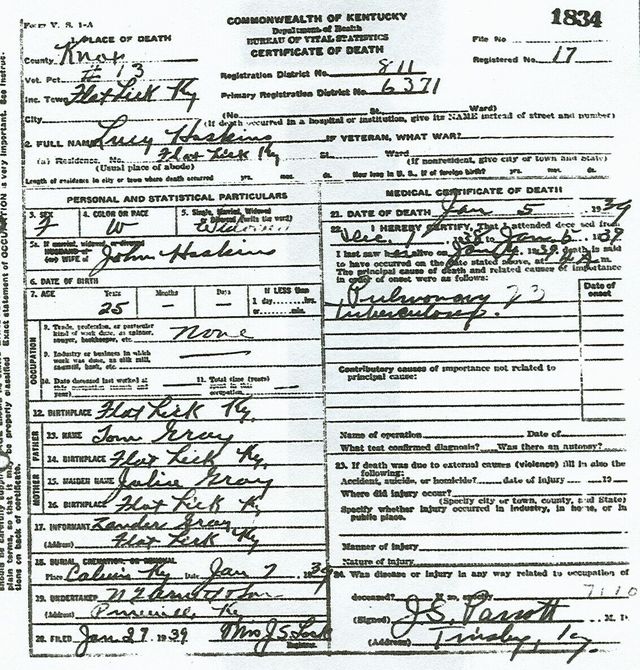 Form V. S. 1-A
COMMONWEALTH OF KENTUCKY
Department of Health
BUREAU OF VITAL STATISTICS
CERTIFICATE OF DEATH
1834
File No
Registered No. 17
1. PLACE OF DEATH
County Knox
Vot. Pct. # 13
Inc. Town Flat Lick Ky
City
Registration District No. 811
Primary Registration District No. 6371
(No. St. Ward)
(If death occurred in a hospital or institution, give its NAME instead of street and number)
2. FULL NAME Lucy Hoskins IF VETERAN, WHAT WAR?
(a) Residence. No. Flat Lick Ky St. Ward
(Usual place of abode) (If nonresident, give city or town and State)
Length of residence in city or town where death occurred yrs. mos. ds. How long in U. S., if of foreign birth? yrs. mos. ds.
PERSONAL AND STATISTICAL PARTICULARS
3. SEX F
4. COLOR OR RACE W
5. Single, Married, Widowed or Divorced (write the word) Widowed
5a. If married, widowed or divorced
HUSBAND of
(or) WIFE of John Hoskins
6. DATE OF BIRTH
7. AGE Years 25 Months - Days - If LESS than 1 day,....hrs. or.....min.
OCCUPATION
8. Trade, profession, or particular kind of work done, as spinner, sawyer, bookkeeper, etc. None
9. Industry or business in which work was done, as silk mill, sawmill, bank, etc.
10. Date deceased last worked at this occupation (month and year)
11. Total time (years) spent in this occupation
12. BIRTHPLACE Flat Lick Ky.
FATHER
13. NAME Tom Gray
14. BIRTHPLACE Flat Lick Ky
MOTHER
15. MAIDEN NAME Julie Gray
16. BIRTHPLACE Flat Lick Ky
17. INFORMANT Lander Gray
(Address) Flat Lick Ky
18. BURIAL, CREMATION, OR REMOVAL
Place Calvin Ky Date Jan 7 1939
19. UNDERTAKER
(Address) Pineville, Ky
20. FILED Jan 27 1939 Mrs J.S. Lock
Registrar.
MEDICAL CERTIFICATE OF DEATH
21. DATE OF DEATH Jan 5 1939
22. I HEREBY CERTIFY, That I attended deceased from
Dec. 1 1938 to Jan. 6 1939
I last saw h alive on 1939 death is said
to have occurred on the date stated above, at m.
The principal cause of death and related causes of importance
in order of onset were as follows:
Date of onset
Pulmonary 23
Tuberculosis.
Contributory causes of importance not related to
principal cause:
Name of operation Date of
What test confirmed diagnosis? Was there an autopsy?
23. If death was due to external causes (violence) fill in also the
following:
Accident, suicide, or homicide? date of injury 19
Where did injury occur?
(Specify city or town, county, and State)
Specify whether injury occurred in industry, in home, or in
public place.
Manner of injury
Nature of injury
24. Was disease or injury in any way related to occupation of
deceased? If so, specify
(Signed) J.S. Parrott M. D.
(Address) Tinsley, Ky.